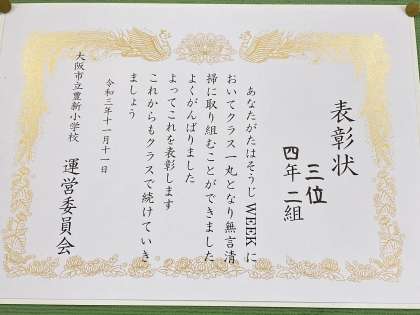 表彰状
三位
四年二組
あなたがたはそうじWEEKに
おいてクラス一丸となり無言清
掃に取り組むことができました
よくがんばりました
よってこれを表彰します
これからもクラスで続けていき
ましょう
令和三年十一月十一日
大阪市立豊新小学校
運営委員会